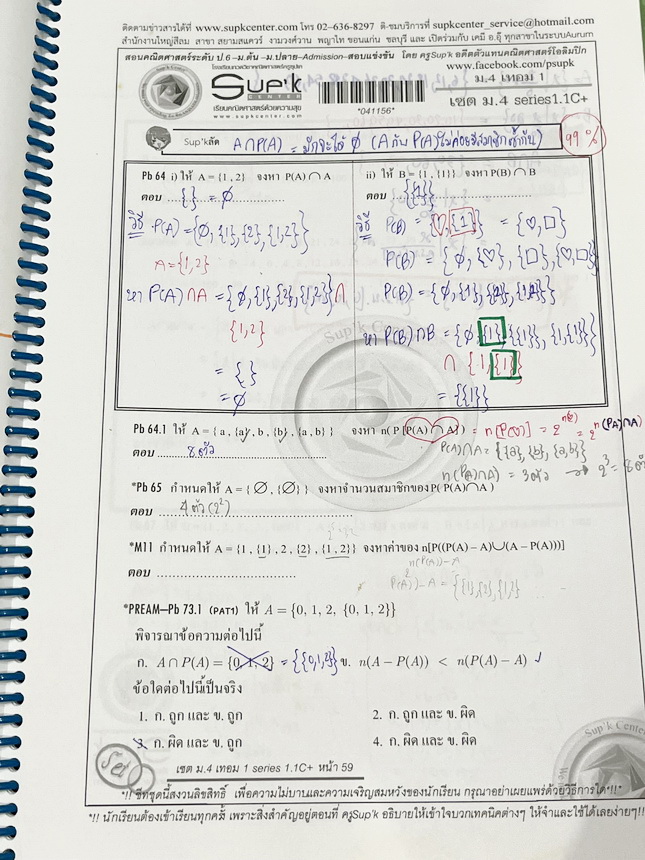 ติดตามข่าวสารได้ที่ www.supkcenter.com โทร 02-636-8297 ติ-ชมบริการที่ supkcenter_service@hotmail.com
สำนักงานใหญ่สีลม สาขา สยามสแควร์ งามวงศ์วาน พญาไท ขอนแก่น ชลบุรี และ เปิดร่วมกับ เคมี อ.อุ๊ ทุกสาขาในระบบAurum
สอนคณิตศาสตร์ระดับ ป.6-ม.ต้น-ม.ปลาย-Admission-สอบแข่งขัน โดย ครูSup'k อดีตตัวแทนคณิตศาสตร์โอลิมปิก
โรงเรียนกวดวิชาคณิตศาสตร์ครูซุปเค
www.facebook.com/psupk
Sup'K CENTER
ม.4 เทอม 1
เรียนคณิตศาสตร์ด้วยความสุข
www.supkcenter.com
*041156*
เซต ม.4 series1.1C+
Sup'kลัด A∩P(A) = มักจะได้ ∅ (A กับ P(A) ไม่ค่อยมีสมาชิกซ้ำกัน) 99%
Pb 64 i) ให้ A = {1, 2} จงหา P(A) ∩ A
ตอบ { } = ∅
วิธี P(A) = {∅,{1},{2},{1,2}}
A = {1,2}
หา P(A)∩A = {∅,{1},{2},{1,2}}∩
{1,2}
= { }
= ∅
ii) ให้ B = {1, {1}} จงหา P(B) ∩ B
ตอบ {{1}}
วิธี P(B) = {♡,{1}} = {♡,□}
P(B) = {∅,{♡},{□},{♡,□}}
P(B) = {∅,{1},
หา P(B)∩B = {∅,{1},{{1}},{1,{1}}}
∩ {1,{1}}
= {{1}}
Pb 64.1 ให้ A = { a , {a} , b , {b} , {a , b} } จงหา n(P[P(A) ∩ A]) = n[P(♡)] = 2ⁿ⁽♡⁾ = 2ⁿ (P(A)∩A)
ตอบ 8 ตัว
P(A)∩A = {{a},{b},{a,b}}
n(P(A)∩A) = 3 ตัว → 2³ = 8 ตัว
*Pb 65 กำหนดให้ A = { ∅ , {∅} } จงหาจำนวนสมาชิกของ P( P(A) ∩ A )
ตอบ 4 ตัว (2²)
*M11 กำหนดให้ A = {1 , {1} , 2 , {2} , {1, 2}} จงหาค่าของ n[P((P(A) – A)∪(A – P(A)))]
ตอบ
n(P(A))-A
P(A)-A = {{1},{2},{1,2}
*PREAM–Pb 73.1 (PAT1) ให้ A = {0, 1, 2, {0, 1, 2}}
พิจารณาข้อความต่อไปนี้
ก. A ∩ P(A) = {0, 1, 2} = {{0,1,2}} ข. n(A − P(A)) < n(P(A) − A) ✓
ข้อใดต่อไปนี้เป็นจริง
1. ก. ถูก และ ข. ถูก 2. ก. ถูก และ ข. ผิด
3. ก. ผิด และ ข. ถูก 4. ก. ผิด และ ข. ผิด
Set
เซต ม.4 เทอม 1 series 1.1C+ หน้า 59
*!! ชีทชุดนี้สงวนลิขสิทธิ์ เพื่อความไม่บาปและความเจริญสมหวังของนักเรียน กรุณาอย่าเผยแพร่ด้วยวิธีการใด!!*
*!! นักเรียนต้องเข้าเรียนทุกครั้ง เพราะสิ่งสำคัญอยู่ตอนที่ ครูSup'k อธิบายให้เข้าใจบวกเทคนิคต่างๆ ให้จำและใช้ได้เลยง่ายๆ!!